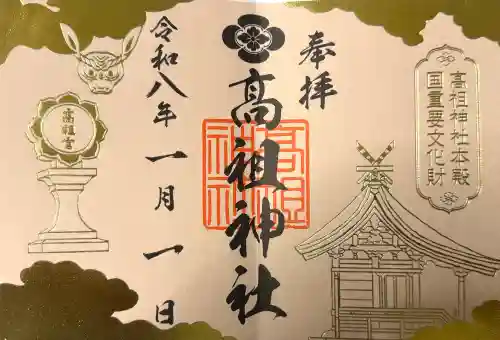 奉拝
高祖神社
高祖神社
令和八年一月一日
高祖神社本殿
国重要文化財
高祖宮